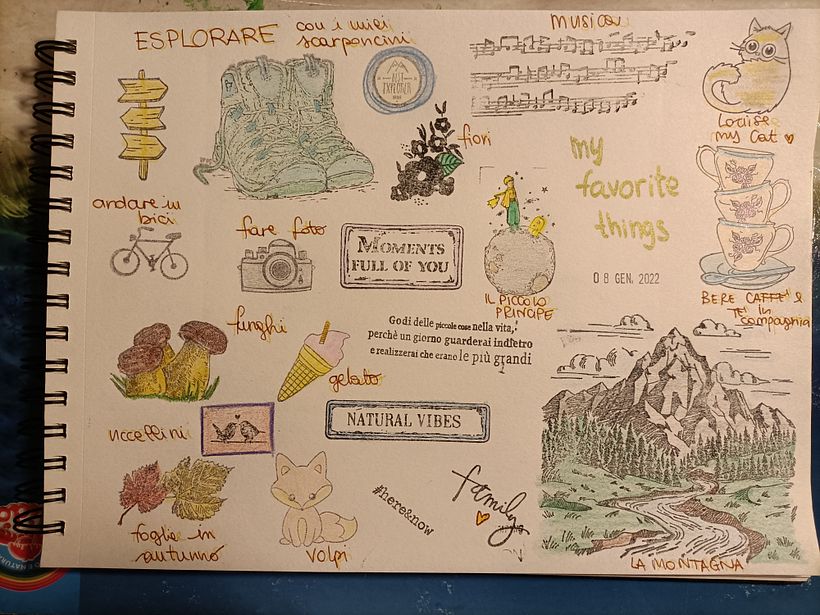 ESPLORARE con i miei
scarponcini
musica
BEST
EXPLORER
Louise
my cat
fiori
my
favorite
things
andare in
bici
fare foto
MOMENTS
FULL OF YOU
08 GEN. 2022
IL PICCOLO
PRINCIPE
BERE CAFFE' e
TE' in
compagnia
funghi
Godi delle piccole cose nella vita,
perchè un giorno guarderai indietro
e realizzerai che erano le più grandi
gelato
uccellini
NATURAL VIBES
#here&now
family
foglie in
autunno
volpi
LA MONTAGNA